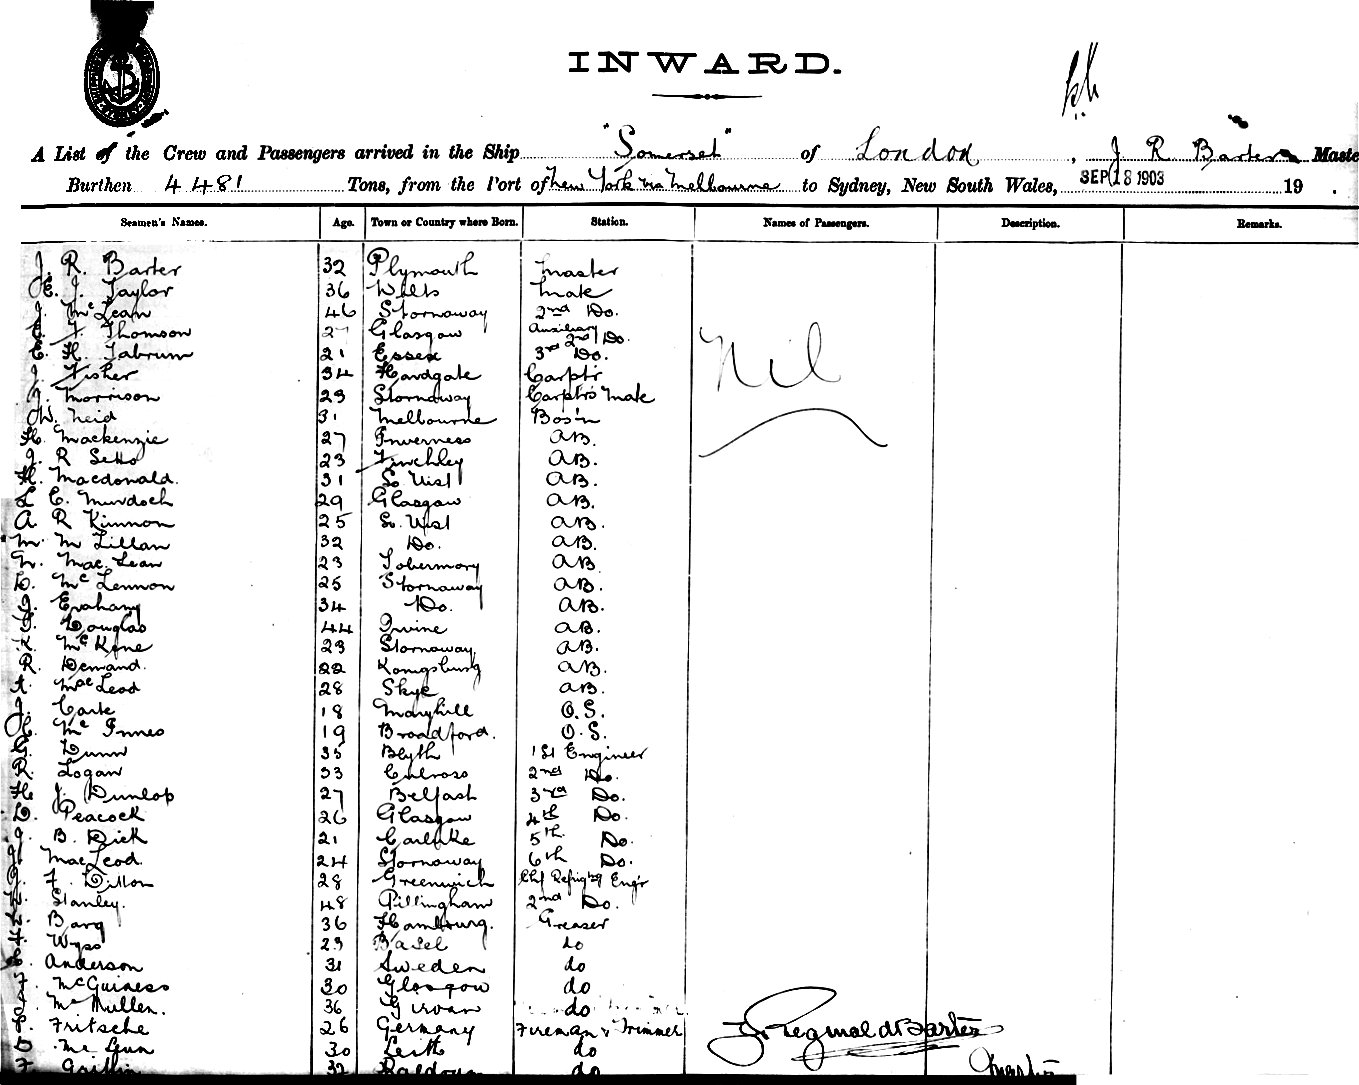 INWARD.
A List of the Crew and Passengers arrived in the Ship "Somerset" of London, J R Barter Maste
Burthen 4481 Tons, from the Port of New York via Melbourne to Sydney, New South Wales, SEP 18 1903 19 .
Seamen's Names. Age. Town or Country where Born. Station. Names of Passengers. Description. Remarks.
J. R. Barter 32 Plymouth Master
E. J. Taylor 36 Wilts Mate
J. McLean 46 Stornoway 2nd Do.
Nil
F. Thomson 27 Glasgow Auxiliary 2nd Do.
E. H. Tabrum 21 Essex 3rd Do.
J. Fisher 34 Hardgate Carptr
J. Morrison 23 Stornoway Carptrs Mate
W. Neid 31 Melbourne Bos'n
H. Mackenzie 27 Inverness AB.
J. R 23 Finchley AB.
H. Macdonald. 31 So Uist AB.
L C. Murdoch 29 Glasgow AB.
A R Kinnon 25 So. Uist AB.
M. M Lillan 32 Do. AB.
N. Mac Lean 23 Tobermory AB.
D. McLennon 25 Stornoway AB.
J. 34 Do. AB.
Douglas 44 Irvine AB.
McKone 23 Stornoway AB.
R. Demand. 22 Konigsburg AB.
A. MacLeod 28 Skye AB.
J. 18 Maryhill O.S.
McInnes 19 Broadford. O.S.
Dunn 35 Blyth 1st Engineer
R. Logan 33 Culross 2nd Do.
H. J. Dunlop 27 Belfast 3rd Do.
D. Peacock 26 Glasgow 4th Do.
J. B. Dick 21 Carluke 5th Do.
MacLeod. 24 Stornoway 6th Do.
F. Dillon 28 Greenwich Chf Refrig'tg Eng'r
Stanley. 48 Gillingham 2nd Do.
Barg 36 Hamburg. Greaser
Wyss 23 Basel do
Anderson 31 Sweden do
McGuiness 30 Glasgow do
McMullen. 36 Girvan do
Fritsche 26 Germany Fireman & Trimmer
J. Reginald Barter
D. McGun 30 Leith do
Master
F. Griffin 32 do